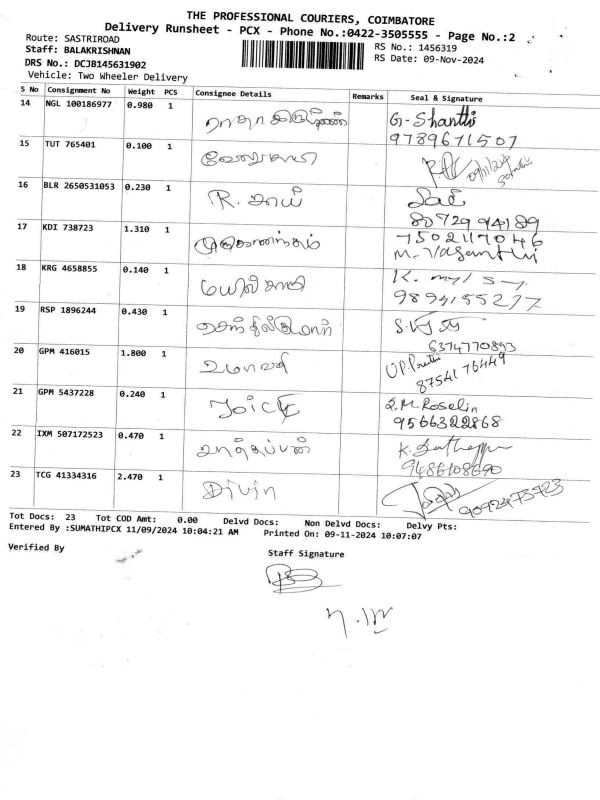 THE PROFESSIONAL COURIERS, COIMBATORE
Delivery Runsheet - PCX - Phone No.:0422-3505555 - Page No.:2
Route: SASTRIROAD
RS No.: 1456319
Staff: BALAKRISHNAN
RS Date: 09-Nov-2024
DRS No.: DCJB145631902
Vehicle: Two Wheeler Delivery
S No Consignment No Weight PCS Consignee Details Remarks Seal & Signature
14 NGL 100186977 0.980 1 G. Shanthi
9789671507
15 TUT 765401 0.100 1 வேலுசாமி
16 BLR 2650531053 0.230 1 R. சாய் Sai
8072994189
17 KDI 738723 1.310 1 7502117046
M. Vasanthi
18 KRG 4658855 0.140 1 மயில்சாமி K.
9894155277
19 RSP 1896244 0.430 1 செந்தில்குமார்
6374770893
20 GPM 416015 1.800 1 உமாவதி UP. Preethi
87541 76449
21 GPM 5437228 0.240 1 Joice S.M Roselin
9566322868
22 IXM 507172523 0.470 1 சாத்தப்பன் K. Sathappan
9486108690
23 TCG 41334316 2.470 1 Divin
9092473723
Tot Docs: 23 Tot COD Amt: 0.00 Delvd Docs: Non Delvd Docs: Delvy Pts:
Entered By :SUMATHIPCX 11/09/2024 10:04:21 AM Printed On: 09-11-2024 10:07:07
Verified By
Staff Signature